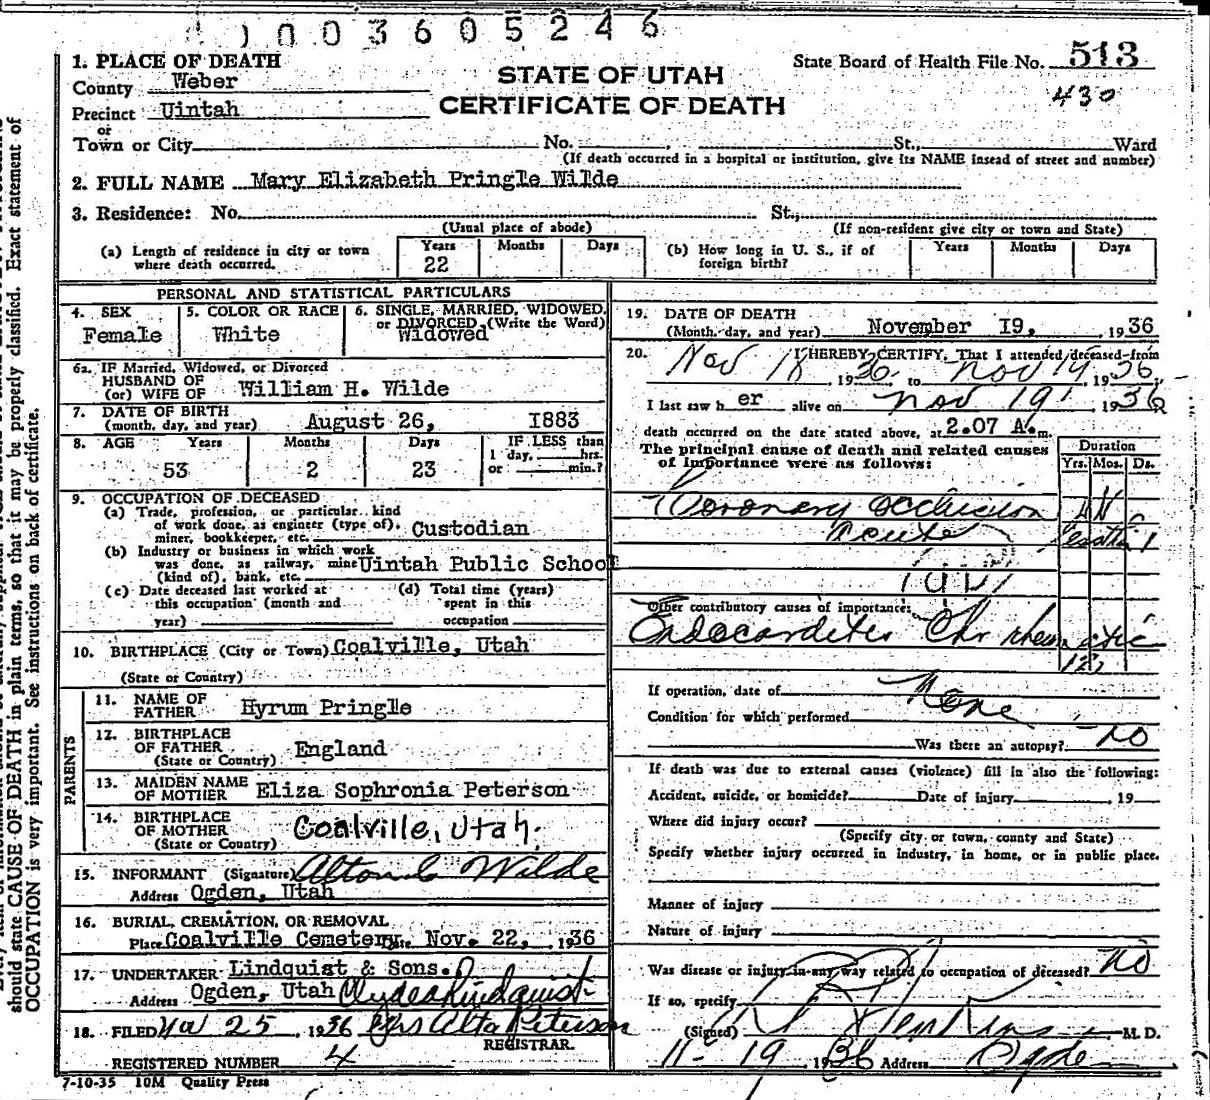 1003605246
1. PLACE OF DEATH
County Weber
Precinct Uintah
or
Town or City No. St., Ward
(If death occurred in a hospital or institution, give its NAME insead of street and number)
STATE OF UTAH
CERTIFICATE OF DEATH
State Board of Health File No. 513
430
2. FULL NAME Mary Elizabeth Pringle Wilde
3. Residence: No. St.,
(Usual place of abode) (If non-resident give city or town and State)
(a) Length of residence in city or town where death occurred. Years 22 Months Days
(b) How long in U. S., if of foreign birth? Years Months Days
PERSONAL AND STATISTICAL PARTICULARS
4. SEX Female
5. COLOR OR RACE White
6. SINGLE, MARRIED, WIDOWED, or DIVORCED (Write the Word) Widowed
6a. IF Married, Widowed, or Divorced
HUSBAND OF
(or) WIFE OF William H. Wilde
7. DATE OF BIRTH
(month, day, and year) August 26, 1883
8. AGE Years 53 Months 2 Days 23 IF LESS than 1 day, hrs. or min.?
9. OCCUPATION OF DECEASED
(a) Trade, profession, or particular kind
of work done, as engineer (type of),
miner, bookkeeper, etc. Custodian
(b) Industry or business in which work
was done, as railway, mine Uintah Public School
(kind of), bank, etc.
(c) Date deceased last worked at
this occupation (month and
year)
(d) Total time (years)
spent in this
occupation
10. BIRTHPLACE (City or Town) Coalville, Utah
(State or Country)
PARENTS
11. NAME OF
FATHER Hyrum Pringle
12. BIRTHPLACE
OF FATHER England
(State or Country)
13. MAIDEN NAME
OF MOTHER Eliza Sophronia Peterson
14. BIRTHPLACE
OF MOTHER Coalville, Utah.
(State or Country)
15. INFORMANT (Signature) Alton C Wilde
Address Ogden, Utah
16. BURIAL, CREMATION, OR REMOVAL
Place Coalville Cemetery Nov. 22, 1936
17. UNDERTAKER Lindquist & Sons.
Address Ogden, Utah Clyde Lindquist
18. FILED Nov 25, 1936 Mrs Alta Peterson
REGISTRAR.
REGISTERED NUMBER 4
7-10-35 10M Quality Press
19. DATE OF DEATH
(Month, day, and year) November 19, 1936
20. I HEREBY CERTIFY, That I attended deceased from
Nov 18, 1936 to Nov 19 1936.
I last saw h er alive on Nov 19 1936
death occurred on the date stated above, at 2.07 A. m.
The principal cause of death and related causes
of importance were as follows:
Duration
Yrs. Mos. Ds.
Coronary occlusion
acute
Other contributory causes of importance:
Endocarditis Chr rheumatic
If operation, date of None
Condition for which performed
Was there an autopsy? no
If death was due to external causes (violence) fill in also the following:
Accident, suicide, or homicide? Date of injury , 19
Where did injury occur?
(Specify city or town, county and State)
Specify whether injury occurred in industry, in home, or in public place.
Manner of injury
Nature of injury
Was disease or injury in any way related to occupation of deceased? no
If so, specify
(Signed) M. D.
11-19 1936 Address Ogden
should state CAUSE OF DEATH in plain terms, so that it may be properly classified. Exact statement of
OCCUPATION is very important. See instructions on back of certificate.